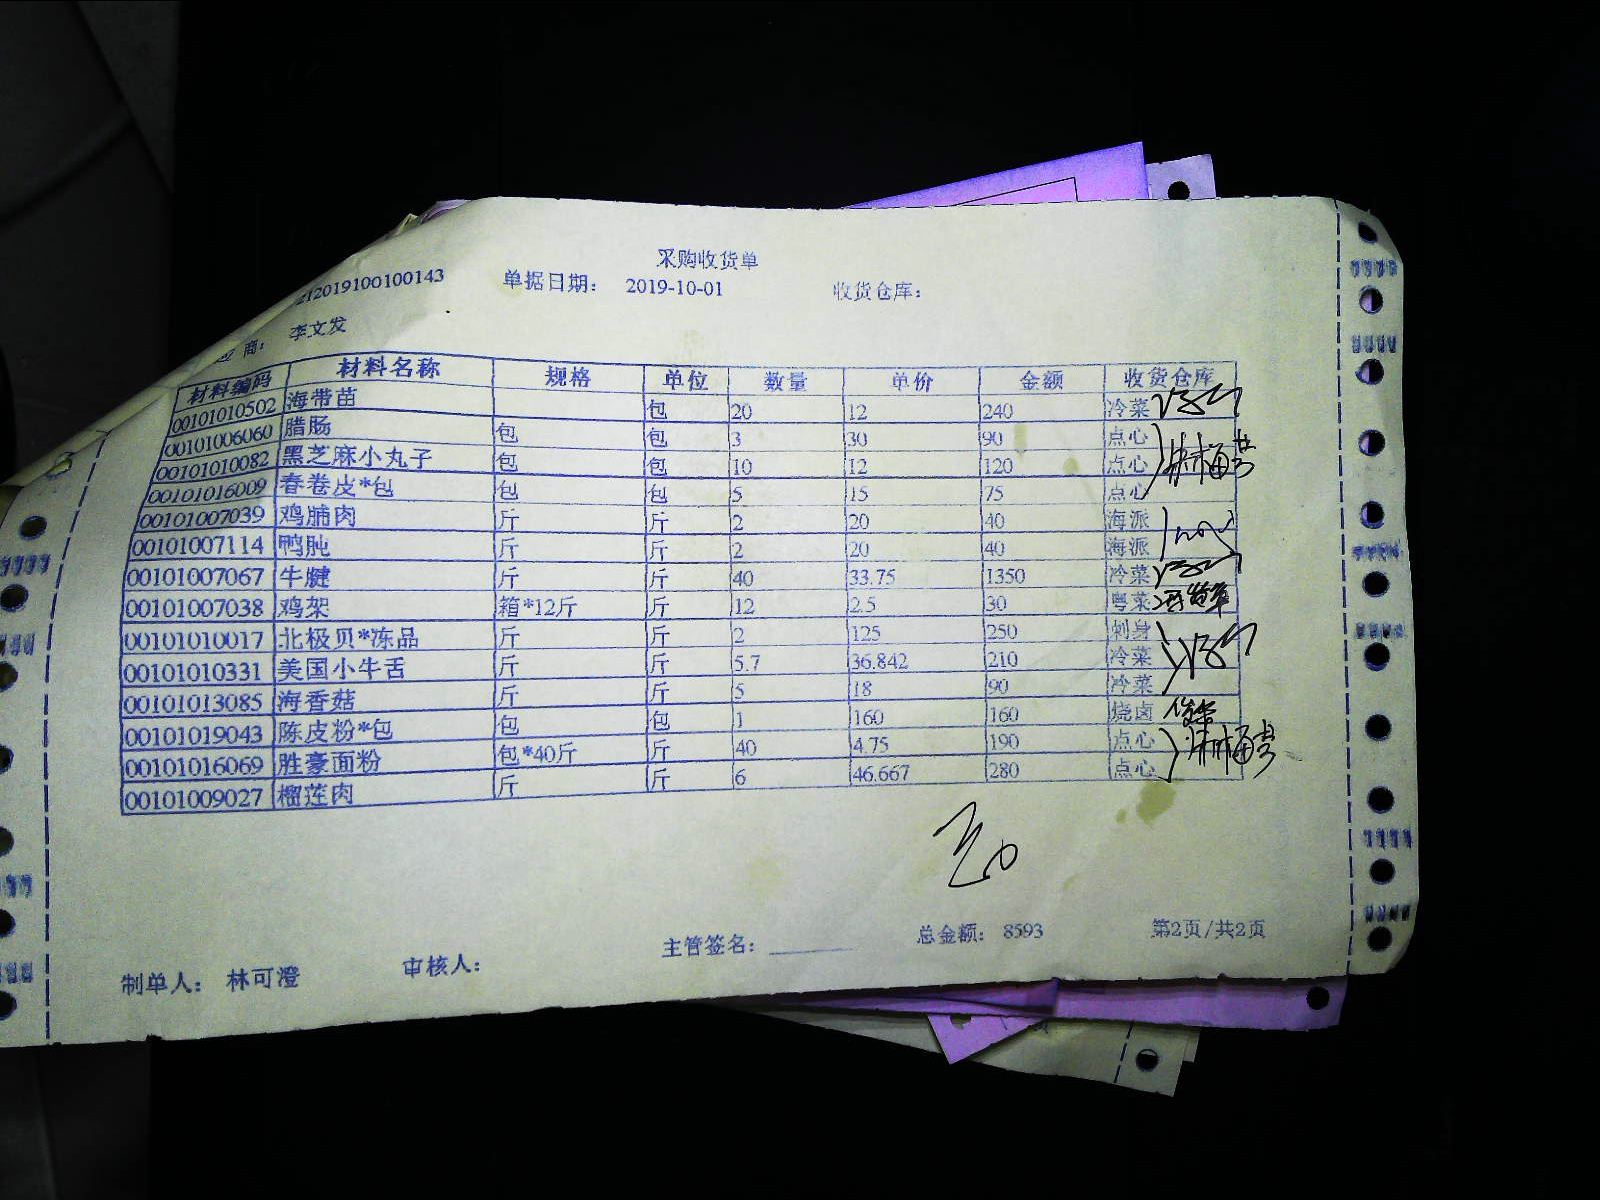 采购收货单
212019100100143 单据日期: 2019-10-01 收货仓库:
应 商: 李文发
材料编码 材料名称 规格 单位 数量 单价 金额 收货仓库
00101010502 海带苗 包 20 12 240 冷菜
00101006060 腊肠 包 包 3 30 90 点心
00101010082 黑芝麻小丸子 包 包 10 12 120 点心
00101016009 春卷皮*包 包 包 5 15 75 点心
00101007039 鸡脯肉 斤 斤 2 20 40 海派
00101007114 鸭肫 斤 斤 2 20 40 海派
00101007067 牛腱 斤 斤 40 33.75 1350 冷菜
00101007038 鸡架 箱*12斤 斤 12 2.5 30 粤菜
00101010017 北极贝*冻品 斤 斤 2 125 250 刺身
00101010331 美国小牛舌 斤 斤 5.7 36.842 210 冷菜
00101013085 海香菇 斤 斤 5 18 90 冷菜
00101019043 陈皮粉*包 包 包 1 160 160 烧卤
00101016069 胜豪面粉 包*40斤 斤 40 4.75 190 点心
00101009027 榴莲肉 斤 斤 6 46.667 280 点心
制单人: 林可澄 审核人: 主管签名: 总金额: 8593 第2页/共2页